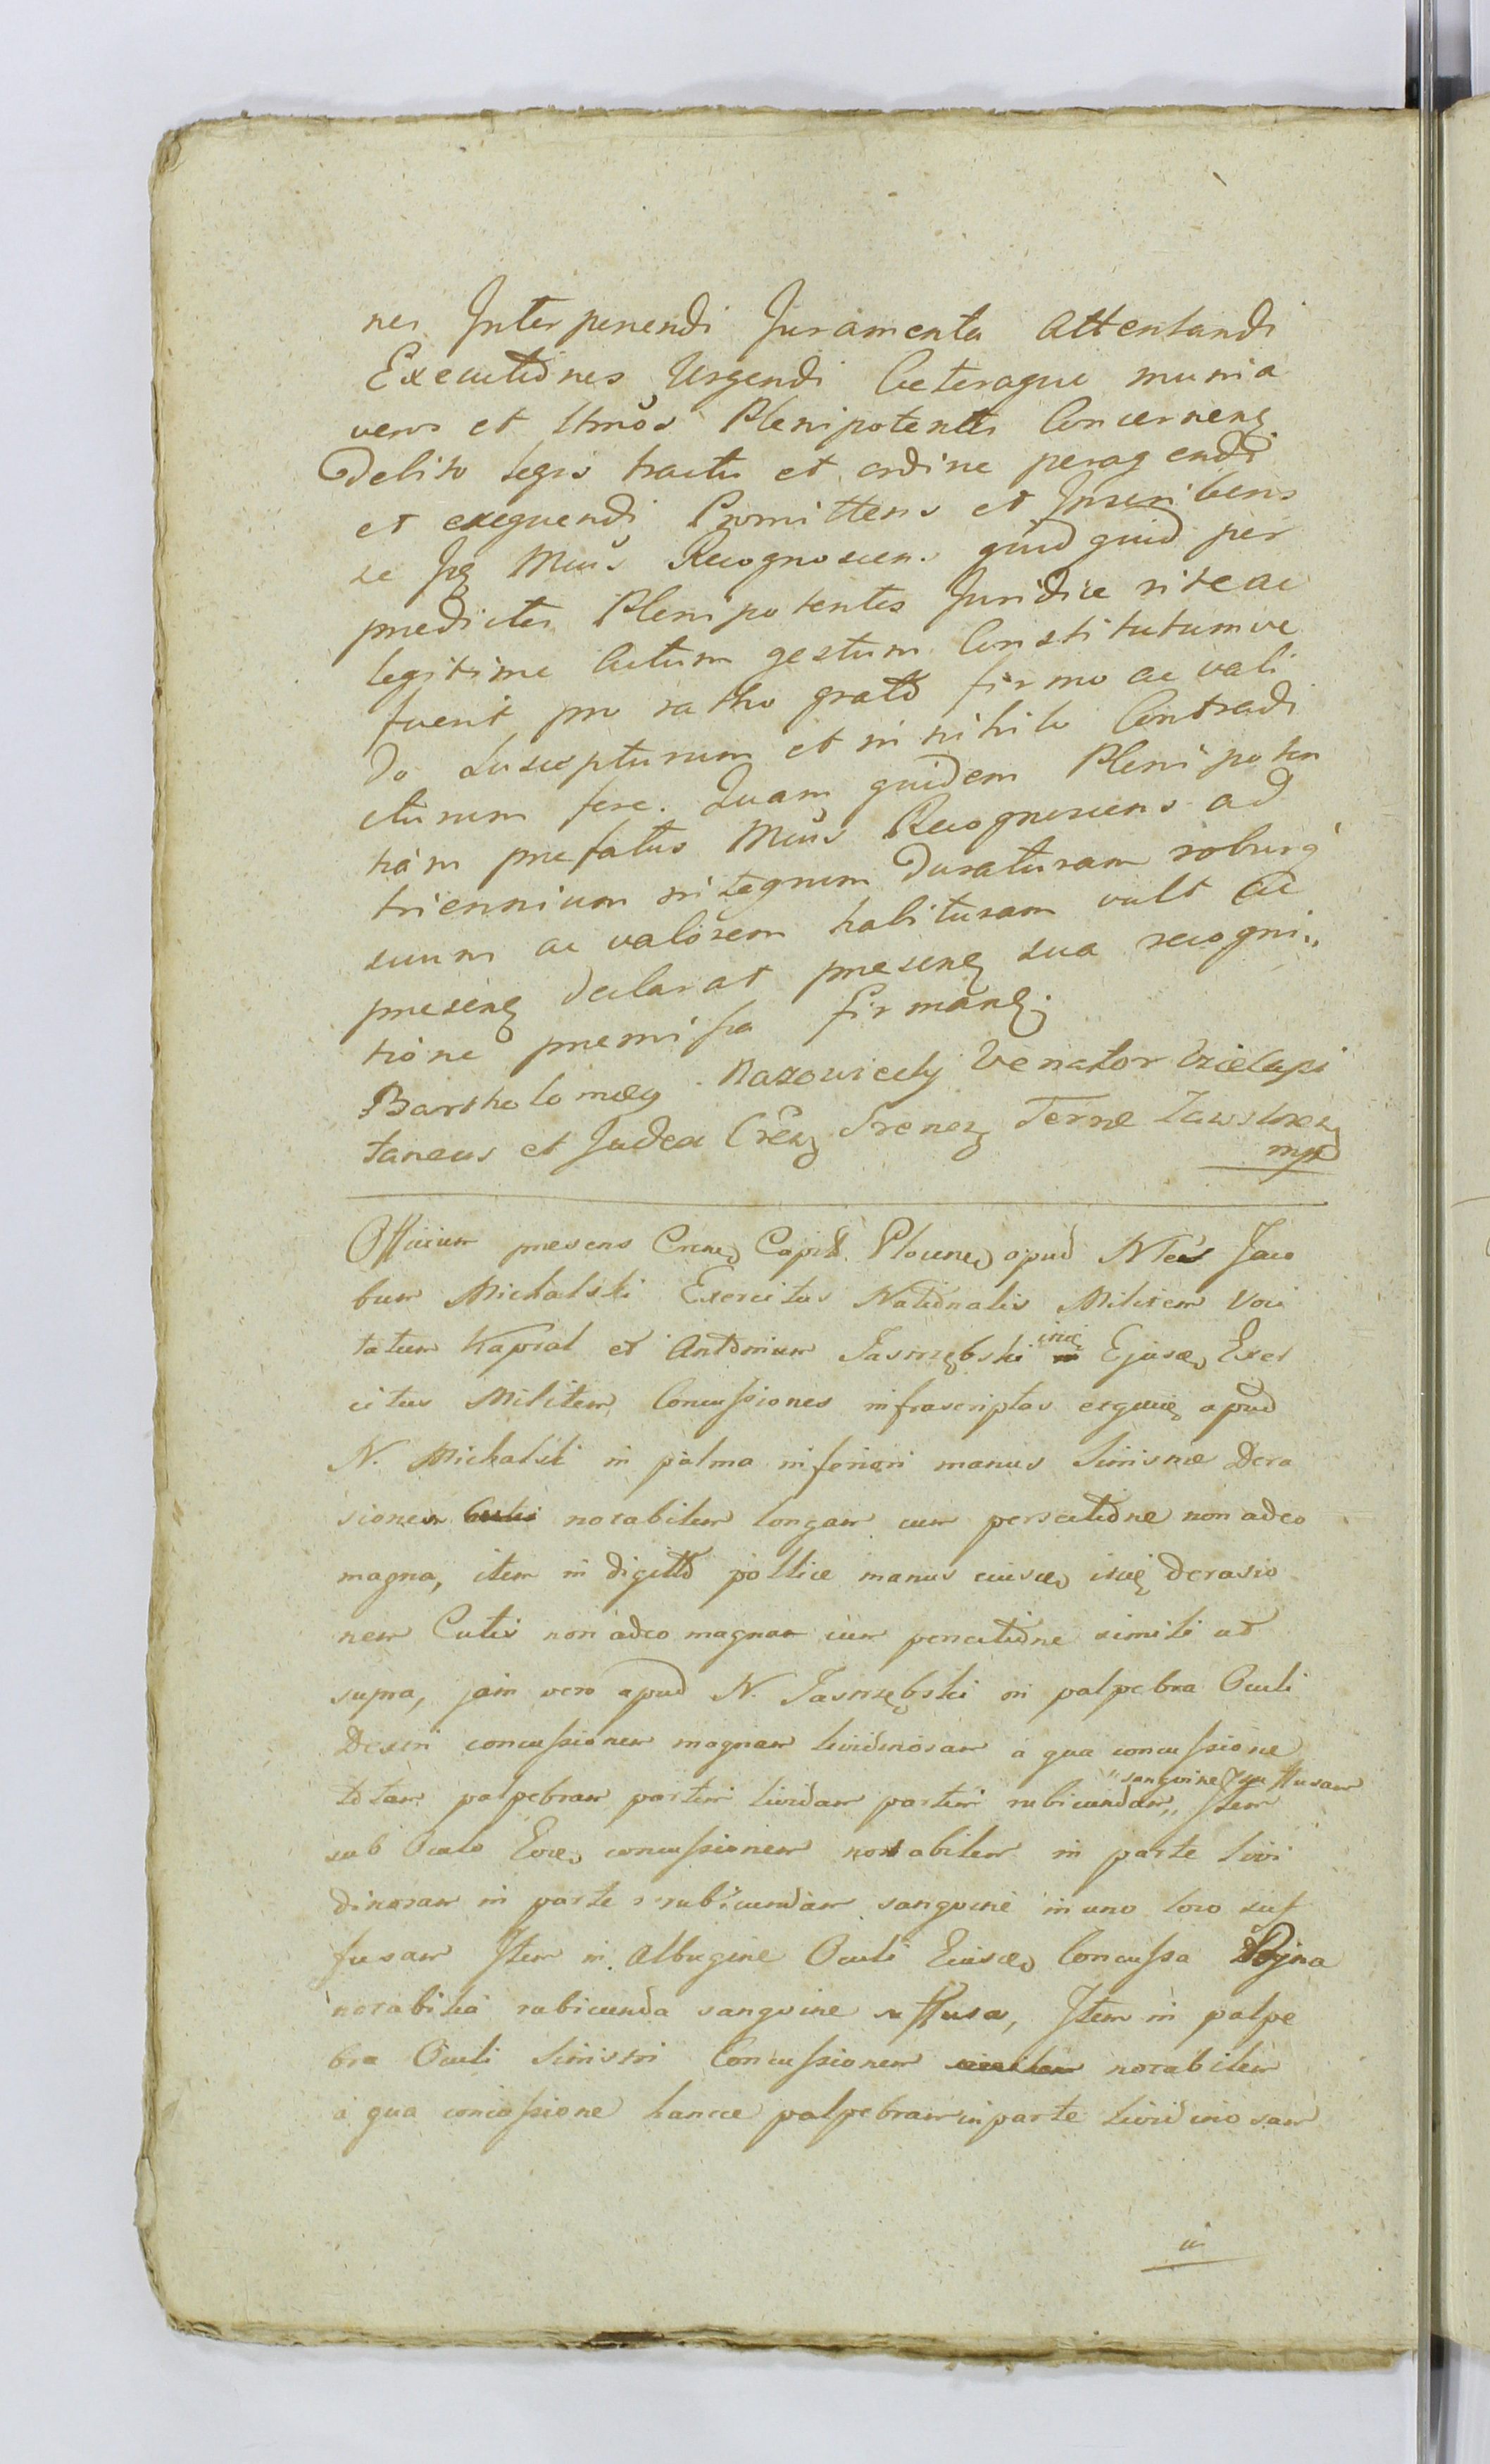 nes Interponendi Juramenta Attentandi
Executiones Urgendi Ceteraque munia
veros et Ltmos Plenipotentes Concernen
Debito legis tractu et ordine peragendi
et exequendi Promittens et Inscribens
se Ip Mcus Recognoscens quid quid per
predictos Plenipotentes Juridice rite ac
legitime Actum gestum Constitutumve
fuerit pro ratho grato firmo ac vali
do Suscepturum et in nihilo Contradi
cturum fore. Quam quidem Plenipoten
tiam prefatus Mcus Recognoscens ad
triennium integrum Duraturam robur q
suum ac valorem habituram vult ac
presen declarat presen sua recogni„
tione premissa firman.
Bartholomeg Venator
taneus et Judex Cren Terre
mp
Officium presens Crense Capit Plocense apud Jaco
bum Michalski Exercitus Nationalis Militem voci
tatum Kapral et Antonium Jastrzębski Ejusd Exer
citus Militem Concussiones infrascriptas apud
N. Michalski in palma inferiori manus Sinistræ Dera
sionem notabilem longam cum percutione non adeo
magna, item in digitto pollice manus ejusd derasio
nem Cutis non adeo magnam cum percutione simili ut
supra, jam vero apud N. Jastrzębski in palpebra Oculi
Dextri concussionem magnam lividinosam a qua concussione
totam palpebram partim lividam partim rubicundam „ sanguine suffusam Item
sub Oculo concussionem notabilem in parte livi
dinosam in parte rubicundam sanguine in uno loco suf
fusam Item in Albugine Oculi Ejusd Concussa
notabilia rubicunda sanguine suffusa, Item in palpe
bra Oculi Sinistri Concussionem notabilem
a qua concussione hancce palpebram in parte lividinosam